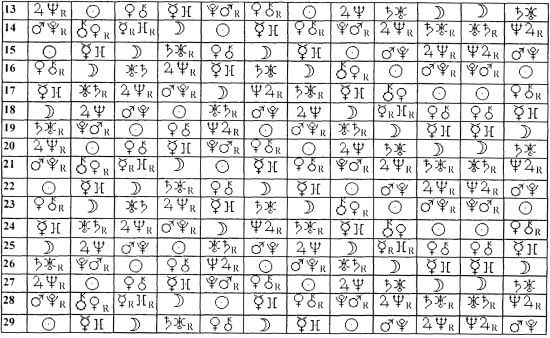 13 ♃♆R ☉ ♀⚷ ☿♓ ♇♂R ♀⚷R ☉ ♃♆ ♄♅ ☽ ☽ ♄♅
14 ♂♇R ⚷♀R ☿R♓R ☽ ☉ ☿♓ ♀⚷R ♇♂R ♃♆R ♄♅R ♄♅R ♆♃R
15 ☉ ☿♓ ☽ ♄♅R ♀⚷ ☽ ☿♓ ☉ ♂♇ ♃♆ ♃♆R ♂♇
16 ♀⚷R ☽ ♅♄ ♃♆R ☿♓ ♄♅ ☽ ⚷♀R ☉ ♇♂R ♇♂R ☉
17 ☿♓ ♅♄R ♃♆R ♂♇R ☽ ♆♃R ♄♅R ☿♓ ⚷♀ ☉ ☉ ♀⚷R
18 ☽ ♃♆ ♂♇ ☉ ♅♄R ♂♇ ♃♆ ☽ ☿R♓R ♀⚷ ♀⚷ ☿♓
19 ♄♅R ♇♂R ☉ ♀⚷ ♆♃R ☉ ♂♇R ♅♄R ☽ ☿♓ ☿♓ ☽
20 ♃♆R ☉ ♀⚷ ☿♓ ♇♂R ♀⚷R ☉ ♃♆ ♄♅ ☽ ☽ ♄♅
21 ♂♇R ⚷♀R ☿R♓R ☽ ☉ ☿♓ ♀⚷R ♇♂R ♃♆R ♄♅R ♅♄R ♆♃R
22 ☉ ☿♓ ☽ ♄♅R ♀⚷ ☽ ☿♓ ☉ ♂♇ ♃♆ ♃♆R ♂♇
23 ♀⚷R ☽ ♅♄ ♃♆R ☿♓ ♄♅ ☽ ⚷♀R ☉ ♇♂R ♇♂R ☉
24 ☿♓ ♅♄R ♃♆R ♂♇R ☽ ♆♃R ♄♅R ☿♓ ⚷♀ ☉ ☉ ♀⚷R
25 ☽ ♃♆ ♂♇ ☉ ♅♄R ♂♇ ♃♆ ☽ ☿R♓R ♀⚷ ♀⚷ ☿♓
26 ♄♅R ♇♂R ☉ ♀⚷ ♆♃R ☉ ♂♇R ♅♄R ☽ ☿♓ ☿♓ ☽
27 ♃♆R ☉ ♀⚷ ☿♓ ♇♂R ♀⚷R ☉ ♃♆ ♄♅ ☽ ☽ ♄♅
28 ♂♇R ⚷♀R ☿R♓R ☽ ☉ ☿♓ ♀⚷R ♇♂R ♃♆R ♄♅R ♅♄R ♆♃R
29 ☉ ☿♓ ☽ ♄♅R ♀⚷ ☽ ☿♓ ☉ ♂♇ ♃♆R ♃♆R ♂♇